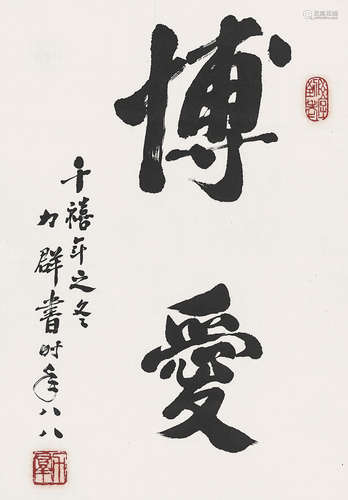 博愛
千禧年之冬
力群書时年八八